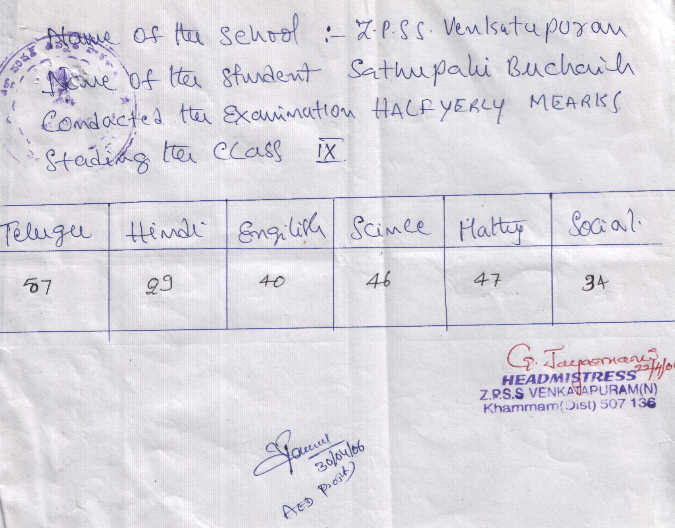 Name of the School :- Z.P.S.S. Venkatapuran
Name of the Student Sathupahi Buchaiah
Condacted the Examination HALFYERLY MEARKS
Steading the Class IX
Telugu Hindi Engilish Scince Maths Social.
57 29 40 46 47 34
G. Jayasmani
22/4/06
HEADMISTRESS
Z.P.S.S VENKATAPURAM(N)
Khammam(Dist) 507 136
30/04/06